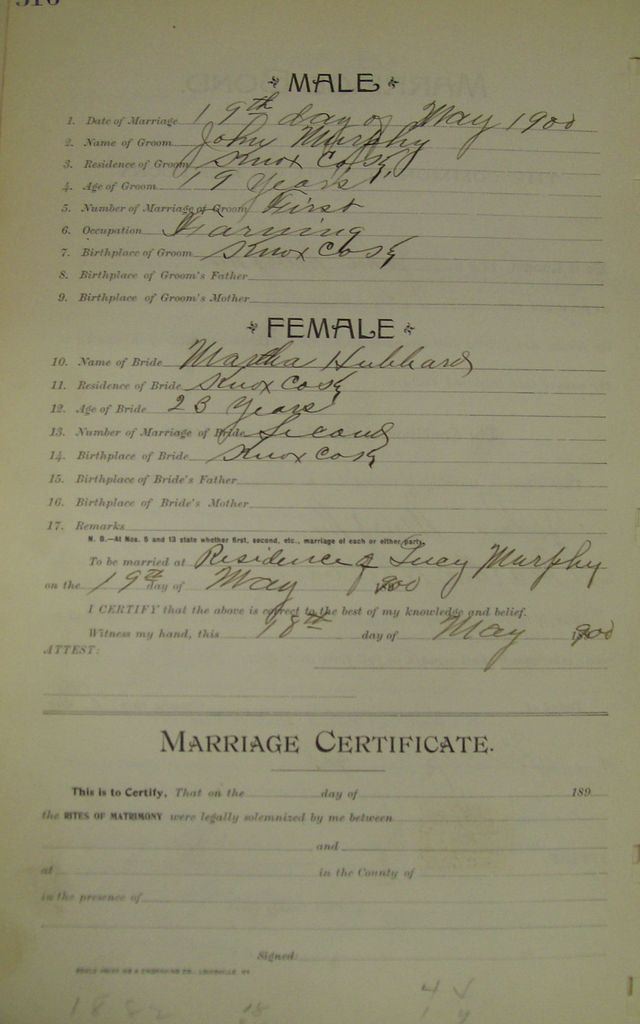 316
MALE
1. Date of Marriage 19th day of May 1900
2. Name of Groom John Murphy
3. Residence of Groom Knox Co Ky
4. Age of Groom 19 Years
5. Number of Marriage of Groom First
6. Occupation Farming
7. Birthplace of Groom Knox Co Ky
8. Birthplace of Groom's Father
9. Birthplace of Groom's Mother
FEMALE
10. Name of Bride Martha Hubbard
11. Residence of Bride Knox Co Ky
12. Age of Bride 23 Years
13. Number of Marriage of Bride Second
14. Birthplace of Bride Knox Co Ky
15. Birthplace of Bride's Father
16. Birthplace of Bride's Mother
17. Remarks
N. B.—At Nos. 5 and 13 state whether first, second, etc., marriage of each or either party.
To be married at Residence of Lucy Murphy
on the 19th day of May 1900
I CERTIFY that the above is correct to the best of my knowledge and belief.
Witness my hand, this 18th day of May 1900
ATTEST:
MARRIAGE CERTIFICATE.
This is to Certify, That on the day of 189
the RITES OF MATRIMONY were legally solemnized by me between
and
at in the County of
in the presence of
Signed:
1882 18 44
19